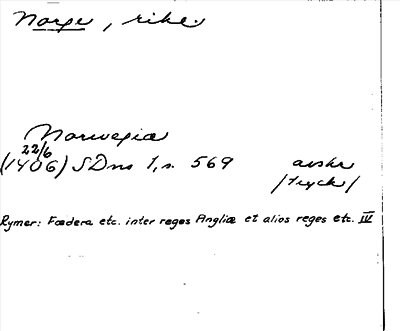 Norge, rike.
Norwegia
22/6
(1406) SDns 1, s. 569 avskr
/tryck/
Rymer: Fædera etc. inter reges Angliæ et alios reges etc. IV